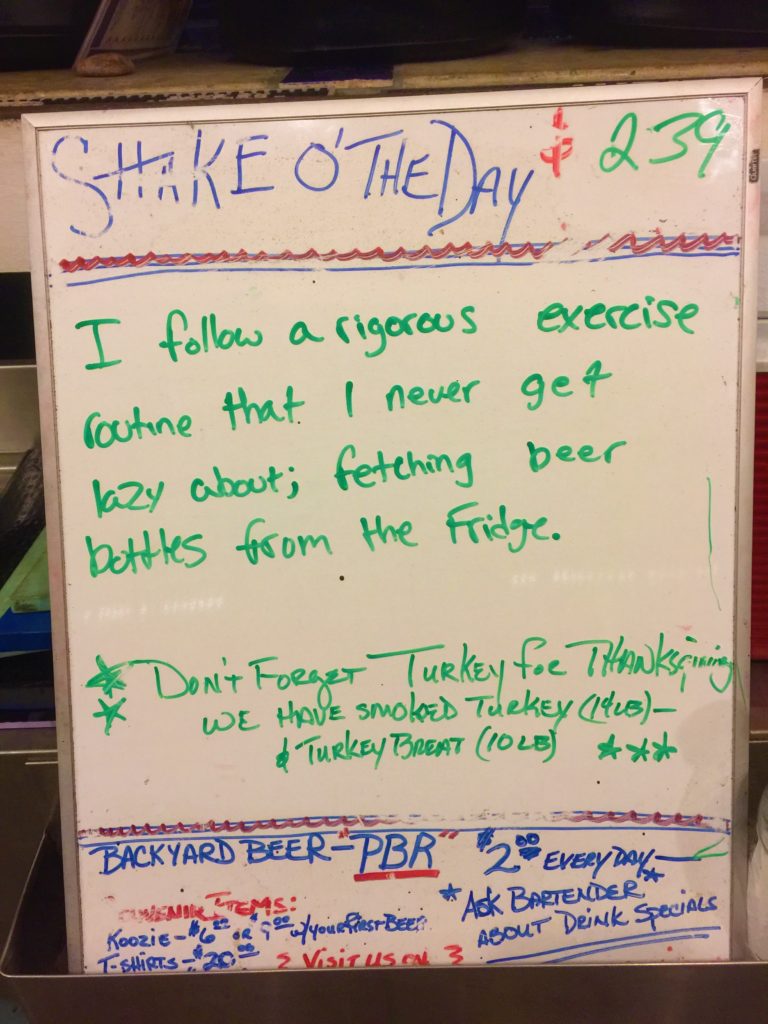 SHAKE O' THE DAY $ 239
I follow a rigorous exercise
routine that I never get
lazy about; fetching beer
bottles from the Fridge.
* DON'T FORGET TURKEY for THANKSgiving
* WE HAVE SMOKED TURKEY (14LB)-
& TURKEY BREAT (10LB) ***
BACKYARD BEER-"PBR" $2.00 EVERYDAY-
SOUVENIR ITEMS:
*ASK BARTENDER*
KOOZIE-$6.00 OR $ w/YOUR FIRST BEER
ABOUT DRINK SPECIALS
T-SHIRTS-$20.00 VISIT US ON